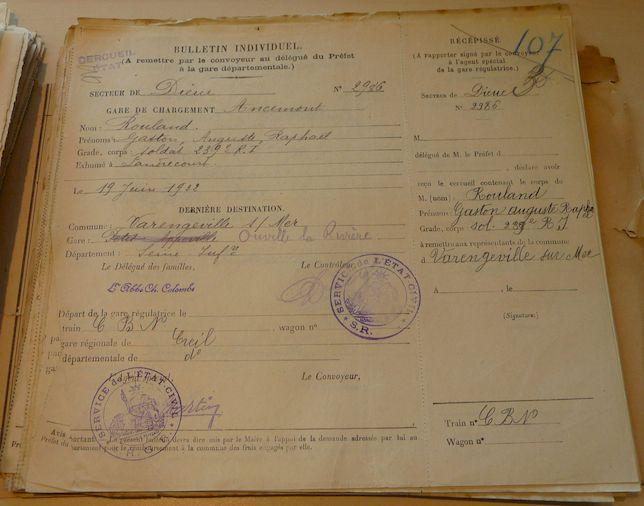 CERCUEIL
ÉTAT
BULLETIN INDIVIDUEL.
(A remettre par le convoyeur au délégué du Préfet
à la gare départementale.)
SECTEUR DE Dieue N° 2986
GARE DE CHARGEMENT Ancemont
Nom: Rouland
Prénoms: Gaston, Auguste, Raphaël
Grade, corps: soldat 239e R.I
Exhumé à
Le 19 Juin 1922
DERNIÈRE DESTINATION.
Commune: Varengeville s/ Mer
Gare: Ouville la Rivière
Département: Seine Infre
Le Délégué des familles, Le Contrôleur,
L'Abbé Ch. Colombe
SERVICE de L'ÉTAT-CIVIL
S.R.
Départ de la gare régulatrice le
train C B N, wagon n°
gare régionale de Creil
départementale de d°
Le Convoyeur,
SERVICE de L'ÉTAT CIVIL
Avis important. Le présent bulletin devra être mis par le Maire à l'appui de la demande adressée par lui au
Préfet du département pour le remboursement à la commune des frais engagés par elle.
107
RÉCÉPISSÉ.
(A rapporter signé par le convoyeur
à l'agent spécial
de la gare régulatrice.)
SECTEUR DE Dieue
N° 2986
M.
délégué de M. le Préfet d
, déclare avoir
reçu le cercueil contenant le corps de
M. (nom) Rouland
Prénoms: Gaston Auguste Rapha
Grade, corps: sol. 239e R I
à remettre aux représentants de la commune
d Varengeville sur Mer
A , le
(Signature.)
Train n° C B N
Wagon n°